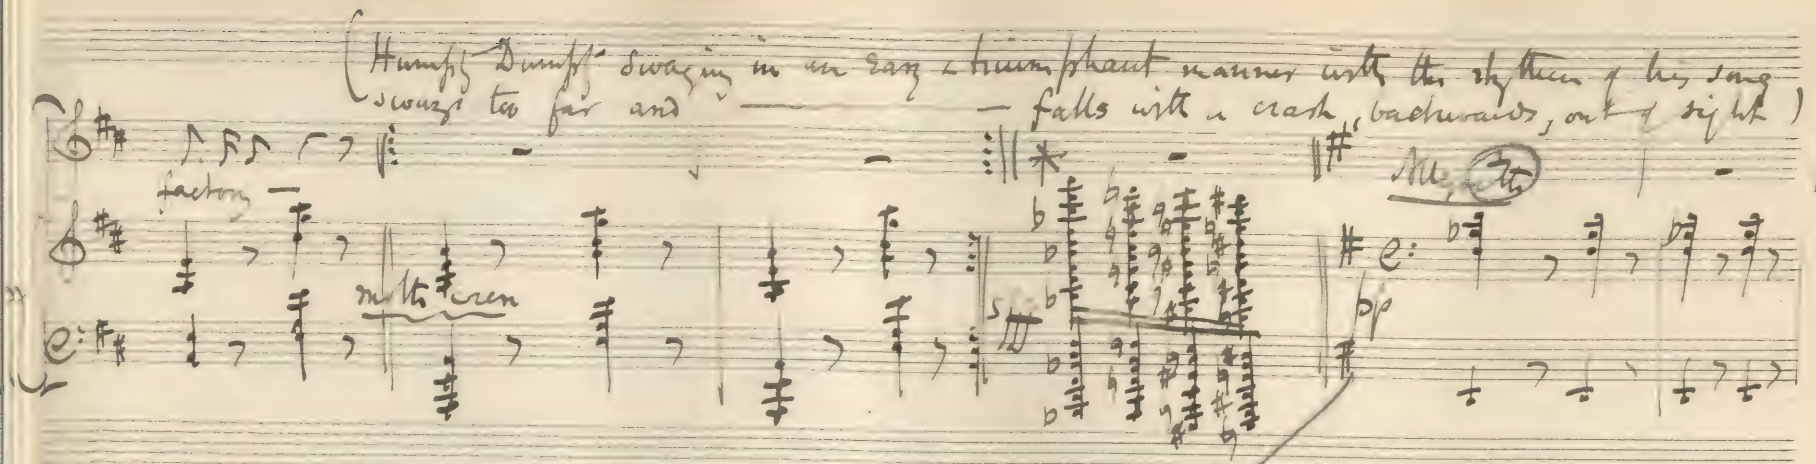 (Humpty Dumpty swaying in an easy & triumphant manner with the rhythm of his song
swings too far and — falls with a crash, backwards, out of sight)
Allegretto
factory —
molto cresc
sfff
pp